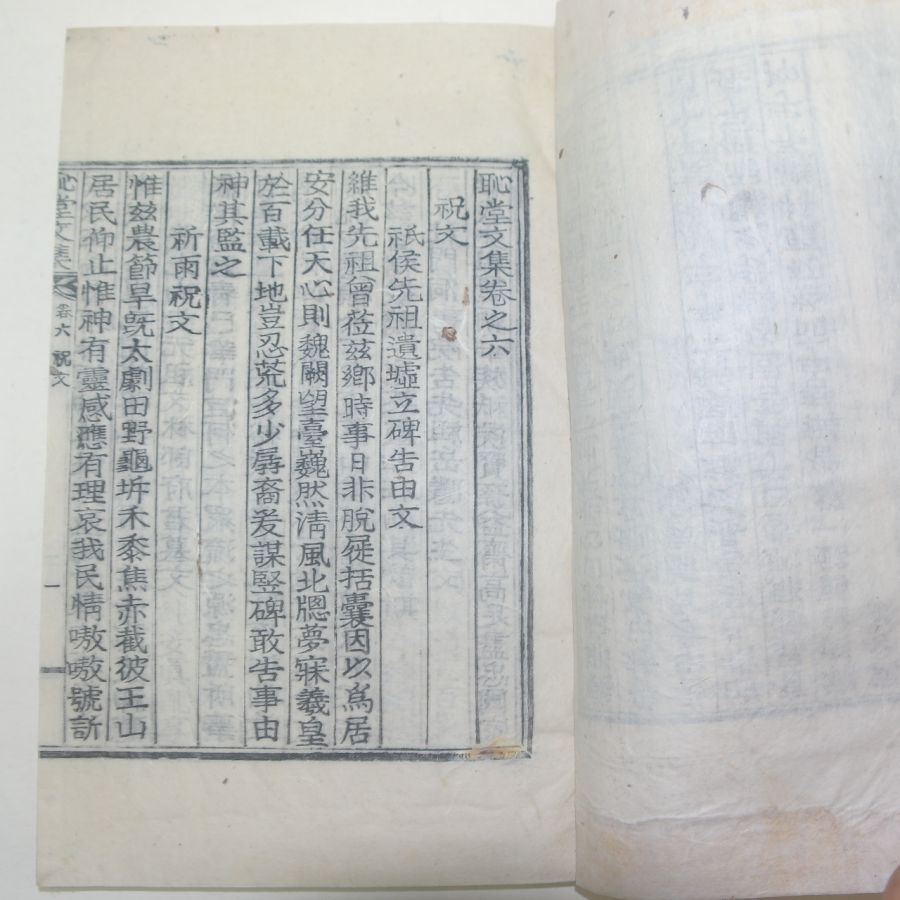 恥堂文集卷之六
祝文
祇侯先祖遺墟立碑告由文
維我先祖曾莅玆鄉時事日非脫屣括囊因以爲居
安分任天心則魏闕望臺巍然淸風北牕夢寐羲皇
於百載下地豈忍荒多少孱裔爰謀竪碑敢告事由
神其監之
祈雨祝文
惟玆農節旱旣太劇田野龜坼禾黍焦赤截彼王山
居民仰止惟神有靈感應有理哀我民情嗷嗷號訴
恥堂文集 卷六 祝文 一